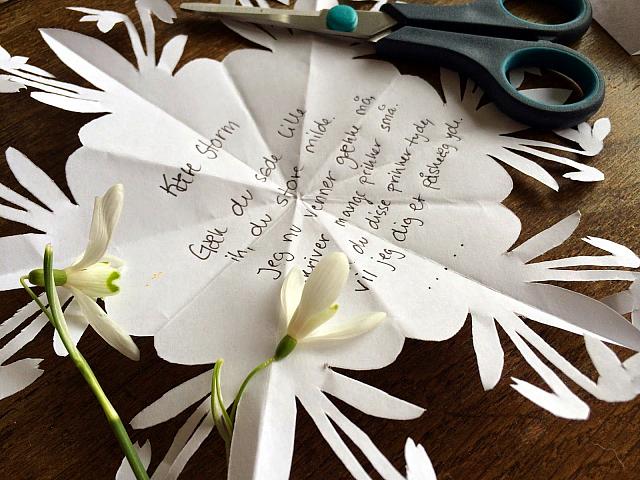 Kære Storm
Gæk du søde lille
ih, du store milde.
Jeg nu venner gætte må,
skriver mange prikker små.
du disse prikker tyde,
vil jeg dig et påskeæg yde.
. . . . .